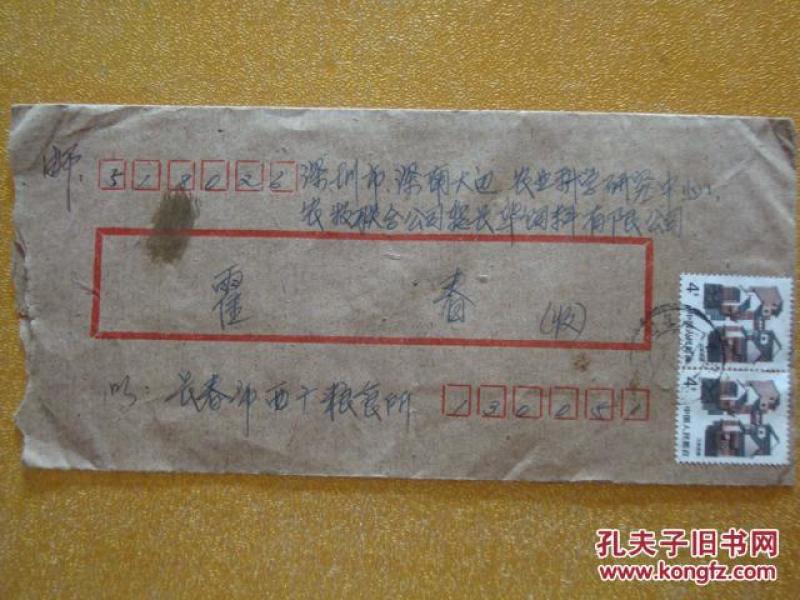 邮:
518026 深圳市.深南大边 农业科学研究中心.
农牧联合公司 华饲料有限公司
霍春(收)
长春市西 粮食所 130051
4分
中国人民邮政
4分
中国人民邮政
孔夫子旧书网
www.kongfz.com